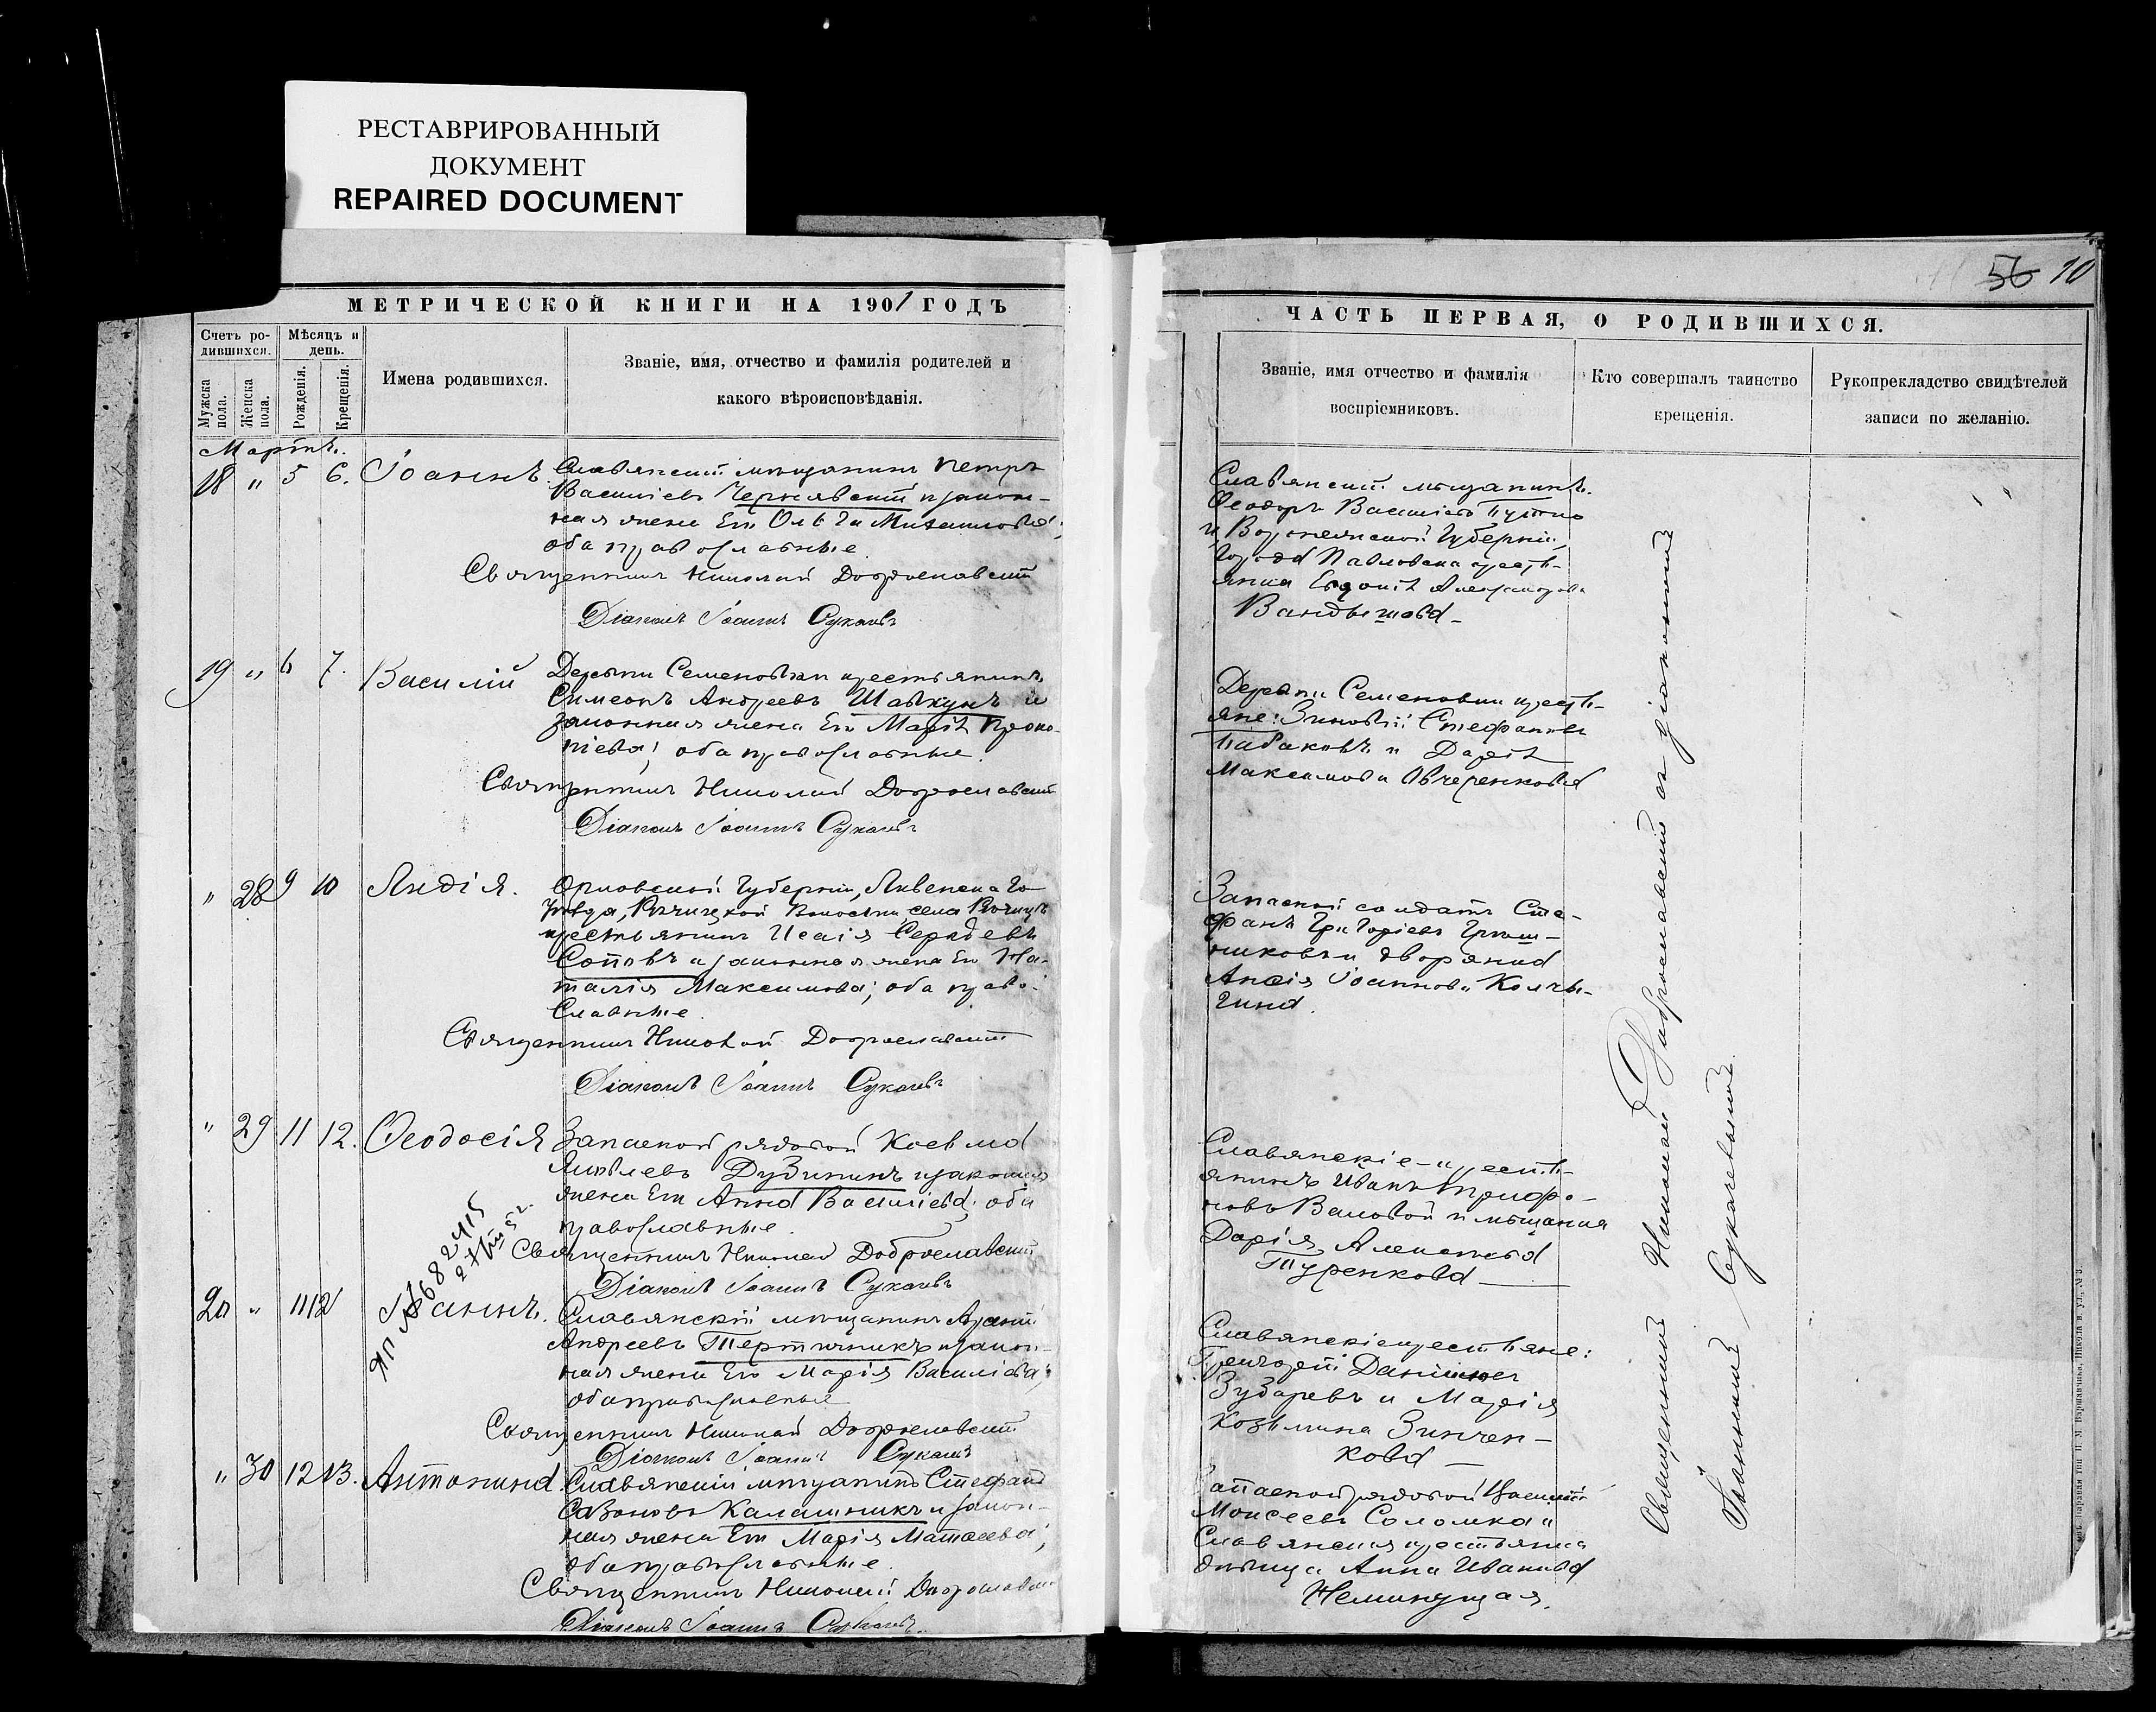 РЕСТАВРИРОВАННЫЙ
ДОКУМЕНТ
REPAIRED DOCUMENT
56 10
МЕТРИЧЕСКОЙ КНИГИ НА 1901 ГОДЪ
Счетъ ро-
дившихся.
Мѣсяцъ и
день.
Мужска
пола.
Женска
пола.
Рожденія.
Крещенія.
Имена родившихся.
Званіе, имя, отчество и фамилія родителей и
какого вѣроисповѣданія.
Мартъ.
18 " 5 6. Іоаннъ. Славянскій мѣщанинъ Петръ
Васильевъ Чернявскій и закон-
ная жена Его Ольга Михаилова;
оба православные.
Священникъ Николай Доброславскій
Діаконъ Іоаннъ
19 " 6 7. Василій Деревни Семеновки крестьянинъ
Симеонъ Андреевъ Шавкунъ и
законная жена Его Марія Проко-
піева; оба православные.
Священникъ Николай Доброславскій
Діаконъ Іоаннъ
" 28 9 10 Лидія. Орловской Губерніи, Ливенскаго
уѣзда, Рѣчицкой Волости, села Рѣчицъ
крестьянинъ Исаія Сергѣевъ
и законная жена Его На-
талія Максимова; оба право-
славные.
Священникъ Николай Доброславскій
Діаконъ Іоаннъ
" 29 11 12. Ѳеодосія Запасной рядовой Косьма
Яковлевъ и законная
жена Его Анна Васильева; оба
православные.
Священникъ Николай Доброславскій
Діаконъ Іоаннъ
20 " 11 12 Іоаннъ. Славянскій мѣщанинъ
Андреевъ Тертичникъ и закон-
ная жена Его Марія Васильева;
оба православные
Священникъ Николай Доброславскій
Діаконъ Іоаннъ
" 30 12 13. Антонина. Славянскій мѣщанинъ Стефанъ
Савоновъ Калашникъ и закон-
ная жена Его Марія Матѳеева;
оба православные.
Священникъ Николай
Діаконъ Іоаннъ
ЧАСТЬ ПЕРВАЯ, О РОДИВШИХСЯ.
Званіе, имя отчество и фамилія
воспріемниковъ.
Кто совершалъ таинство
крещенія.
Рукопрекладство свидѣтелей
записи по желанію.
Славянскій мѣщанинъ
Ѳеодоръ Васильевъ
и Воронежской Губерніи,
города Павловска кресть-
янка Евдокія Александрова
Вандышова
Деревни Семеновки кресть-
яне: Зиновій Стефановъ
Табаковъ и Дарія
Максимова Овчеренкова
Запасной солдатъ Сте-
фанъ Григорьевъ
и дворянка
Іоаннова Колчи-
гина.
Славянскіе - крест-
янинъ Иванъ Трифо-
новъ Валовой и мѣщанка
Дарія Алексѣева
Туренкова
Славянскіе крестьяне:
Григорій Даніиловъ
Зубаревъ и Марія
Козьмина Зинчен-
кова
Запасной рядовой
Моисеевъ Соломка и
Славянская крестьянка
дѣвица Анна Иванова
Неминущая.
Священникъ Николай Доброславскій съ діакономъ
Іоанномъ Сукачевымъ